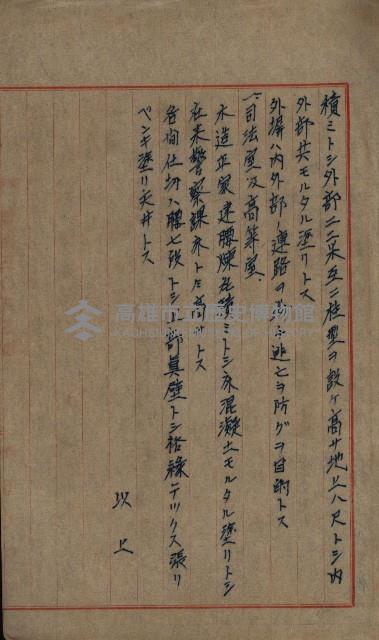 積ミトシ外部ニ二米互ニ柱型ヲ設ケ高サ地上八尺トシ内
外部共モルタル塗リトス
外塀ハ内外部ノ連絡 逃亡ヲ防グヲ目的トス
一、司法室及高等室
木造平家建腰煉瓦積ミトシ床混凝土モルタル塗リトシ
在来警察課床ト同高サトス
各間仕切ハ腰七段トシ 部真壁トシ格縁テックス張リ
ペンキ塗リ天井トス
以上
高雄市立歷史博物館
KAOHSIUNG MUSEUM OF HISTORY